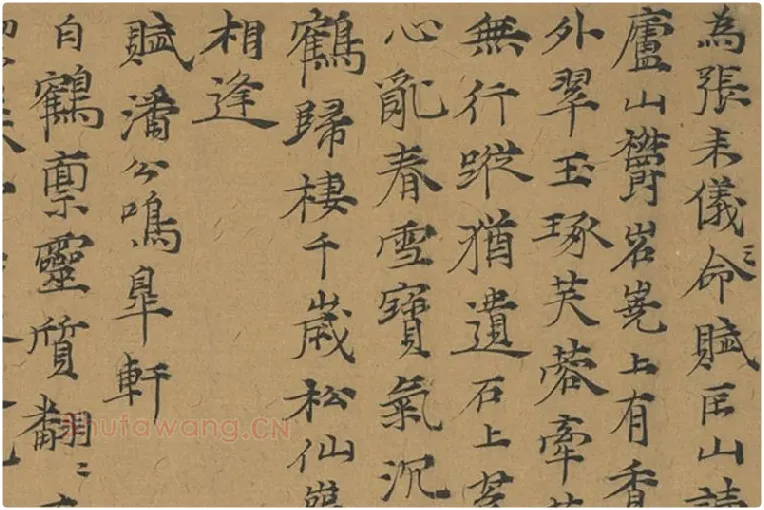 為張来儀命賦匡山詩
廬山鬱岧嶤上有香
外翠玉琢芙蓉牽
無行蹤猶遺石上
心亂春雪寶氣沉
鶴歸棲千歲松仙
相逢
賦潘公鳴臯軒
白鶴稟靈質翻〻
shufawang.CN